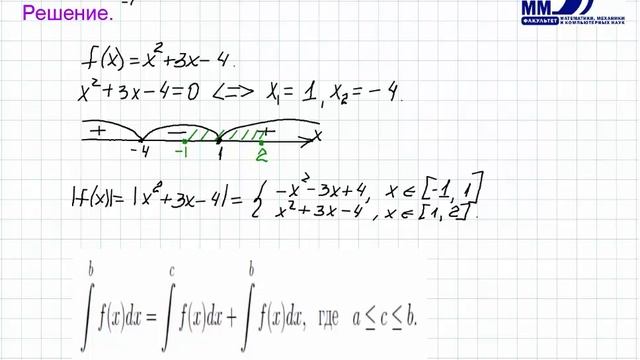 -1
Решение.
ММ
ФАКУЛЬТЕТ
МАТЕМАТИКИ, МЕХАНИКИ
И КОМПЬЮТЕРНЫХ НАУК
f(x) = x² + 3x - 4.
x² + 3x - 4 = 0 <=> x₁ = 1, x₂ = -4.
+ - + x
-4 -1 1 2
|f(x)| = |x² + 3x - 4| = { -x² - 3x + 4, x ∈ [-1, 1]
x² + 3x - 4, x ∈ [1, 2].
∫ₐᵇ f(x)dx = ∫ₐᶜ f(x)dx + ∫꜀ᵇ f(x)dx, где a ≤ c ≤ b.